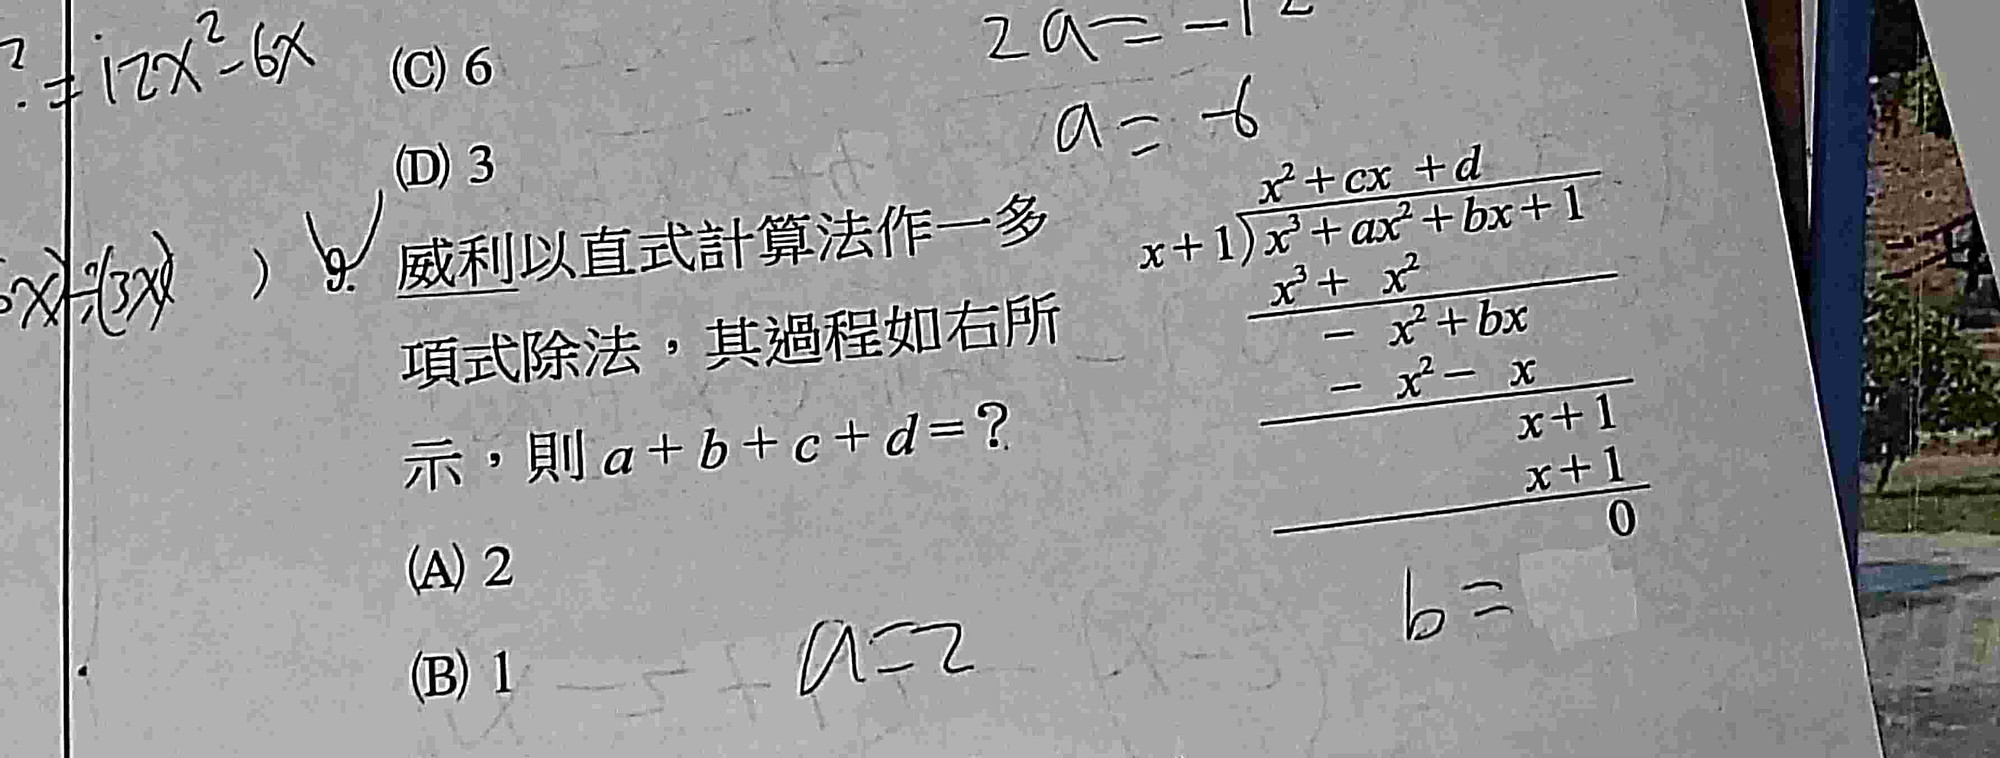 = 12x² - 6x
(C) 6
2a = -12
a = -6
(D) 3
9. 威利以直式計算法作一多
項式除法，其過程如右所
示，則 a + b + c + d = ?
x² + cx + d
x + 1) x³ + ax² + bx + 1
x³ + x²
- x² + bx
- x² - x
x + 1
x + 1
0
(A) 2
(B) 1
a = 2
b =